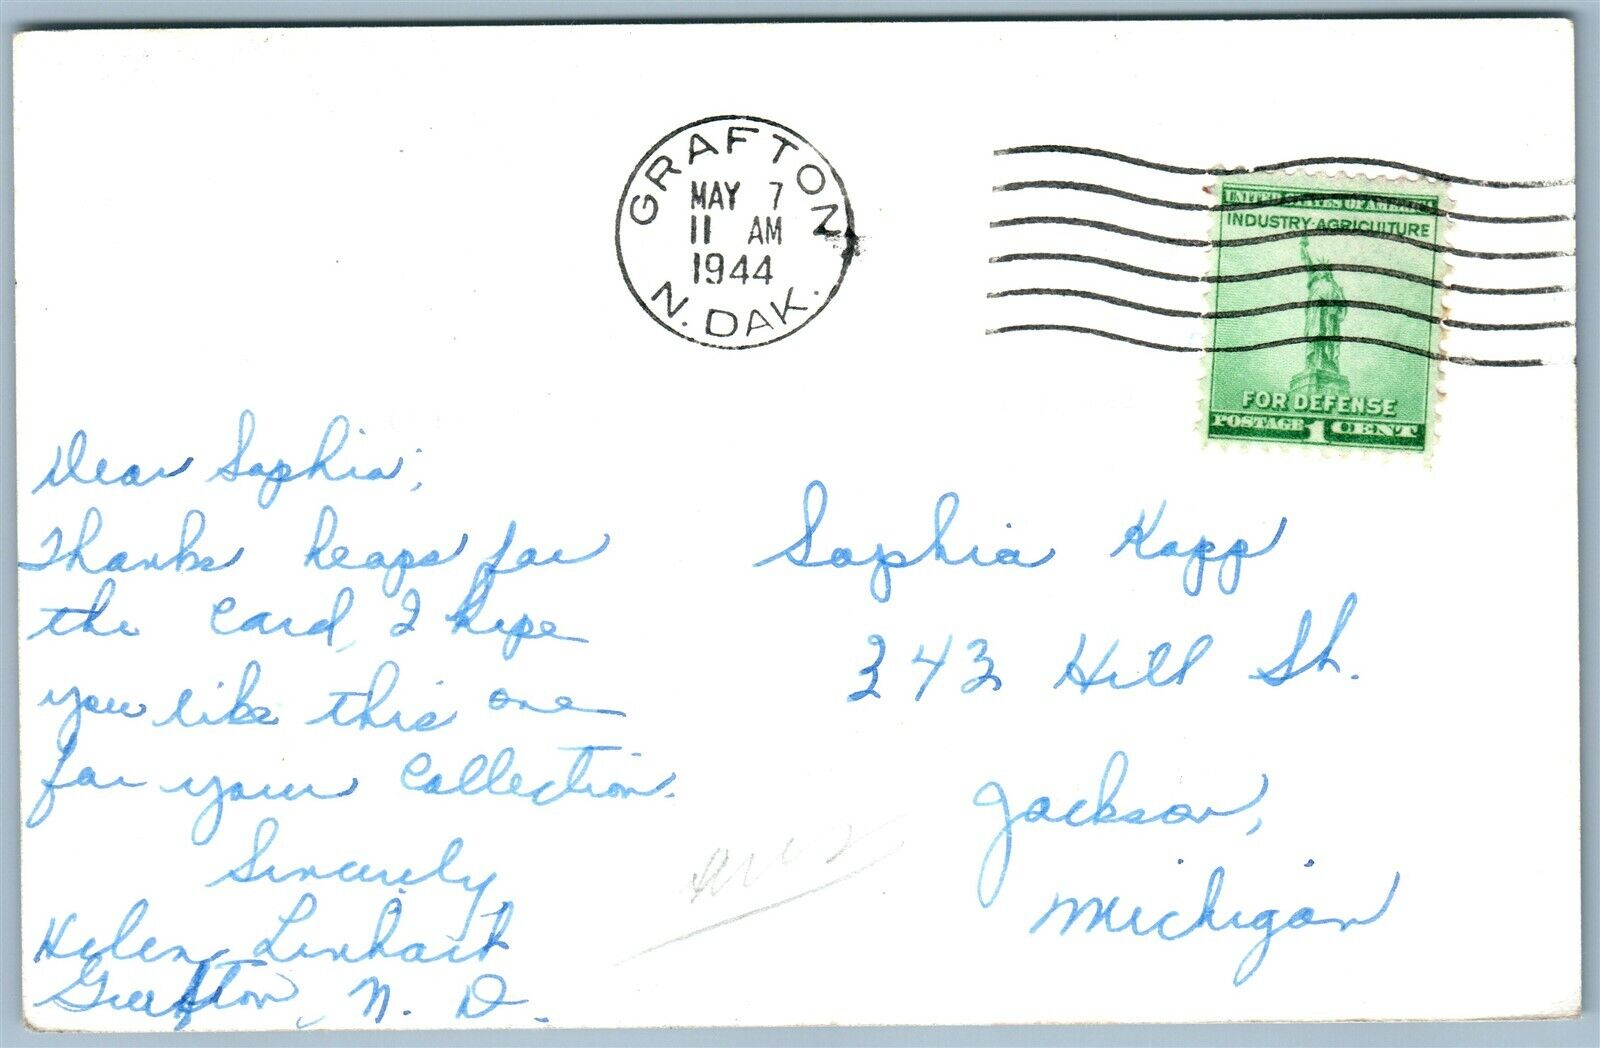 GRAFTON
MAY 7
11 AM
1944
N. DAK.
UNITED STATES OF AMERICA
INDUSTRY-AGRICULTURE
FOR DEFENSE
POSTAGE 1 CENT
Dear Sophia;
Thanks heaps for
the card, I hope
you like this one
for your collection.
Sincerely
Helen Linhart
Grafton, N. D.
Sophia Kapp
343 Hill St.
Jackson,
Michigan